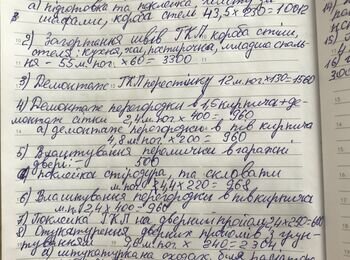 а) підготовка та поклейка
шафами, короба стель 43,5 х 230 = 10012
2) Загортення швів ГКЛ короба стіни,
стеля, кухня, хай, расширочка, спаль
ня - 55 м.пог. х 60 = 3300
3) Демонтаж ГКЛ перестінку 12 м.пог х 130 = 1560
4) Демонтаж перегородки в 1,5 кирпича + де
монтаж сітки - 2,4 м.пог х 400 = 960
а) демонтаж перегородки в пів кирпича
4,8 м.пог. х 200 = 960
5) Влаштування перемички в гаражні
двері - 500
поклейка стіродура, та скловати
м.пог. 4,4 х 220 = 968
6) Влаштування перегородки в пів кирпича
м.п. 2,4 х 400 = 960
7) Поклейка ГКЛ на дверний пройом 2,4 х 250 = 600
8) Отукатурення дверних пройомів з грун
туванням 9,6 м.пог х 240 = 2304
а) штукатурка на